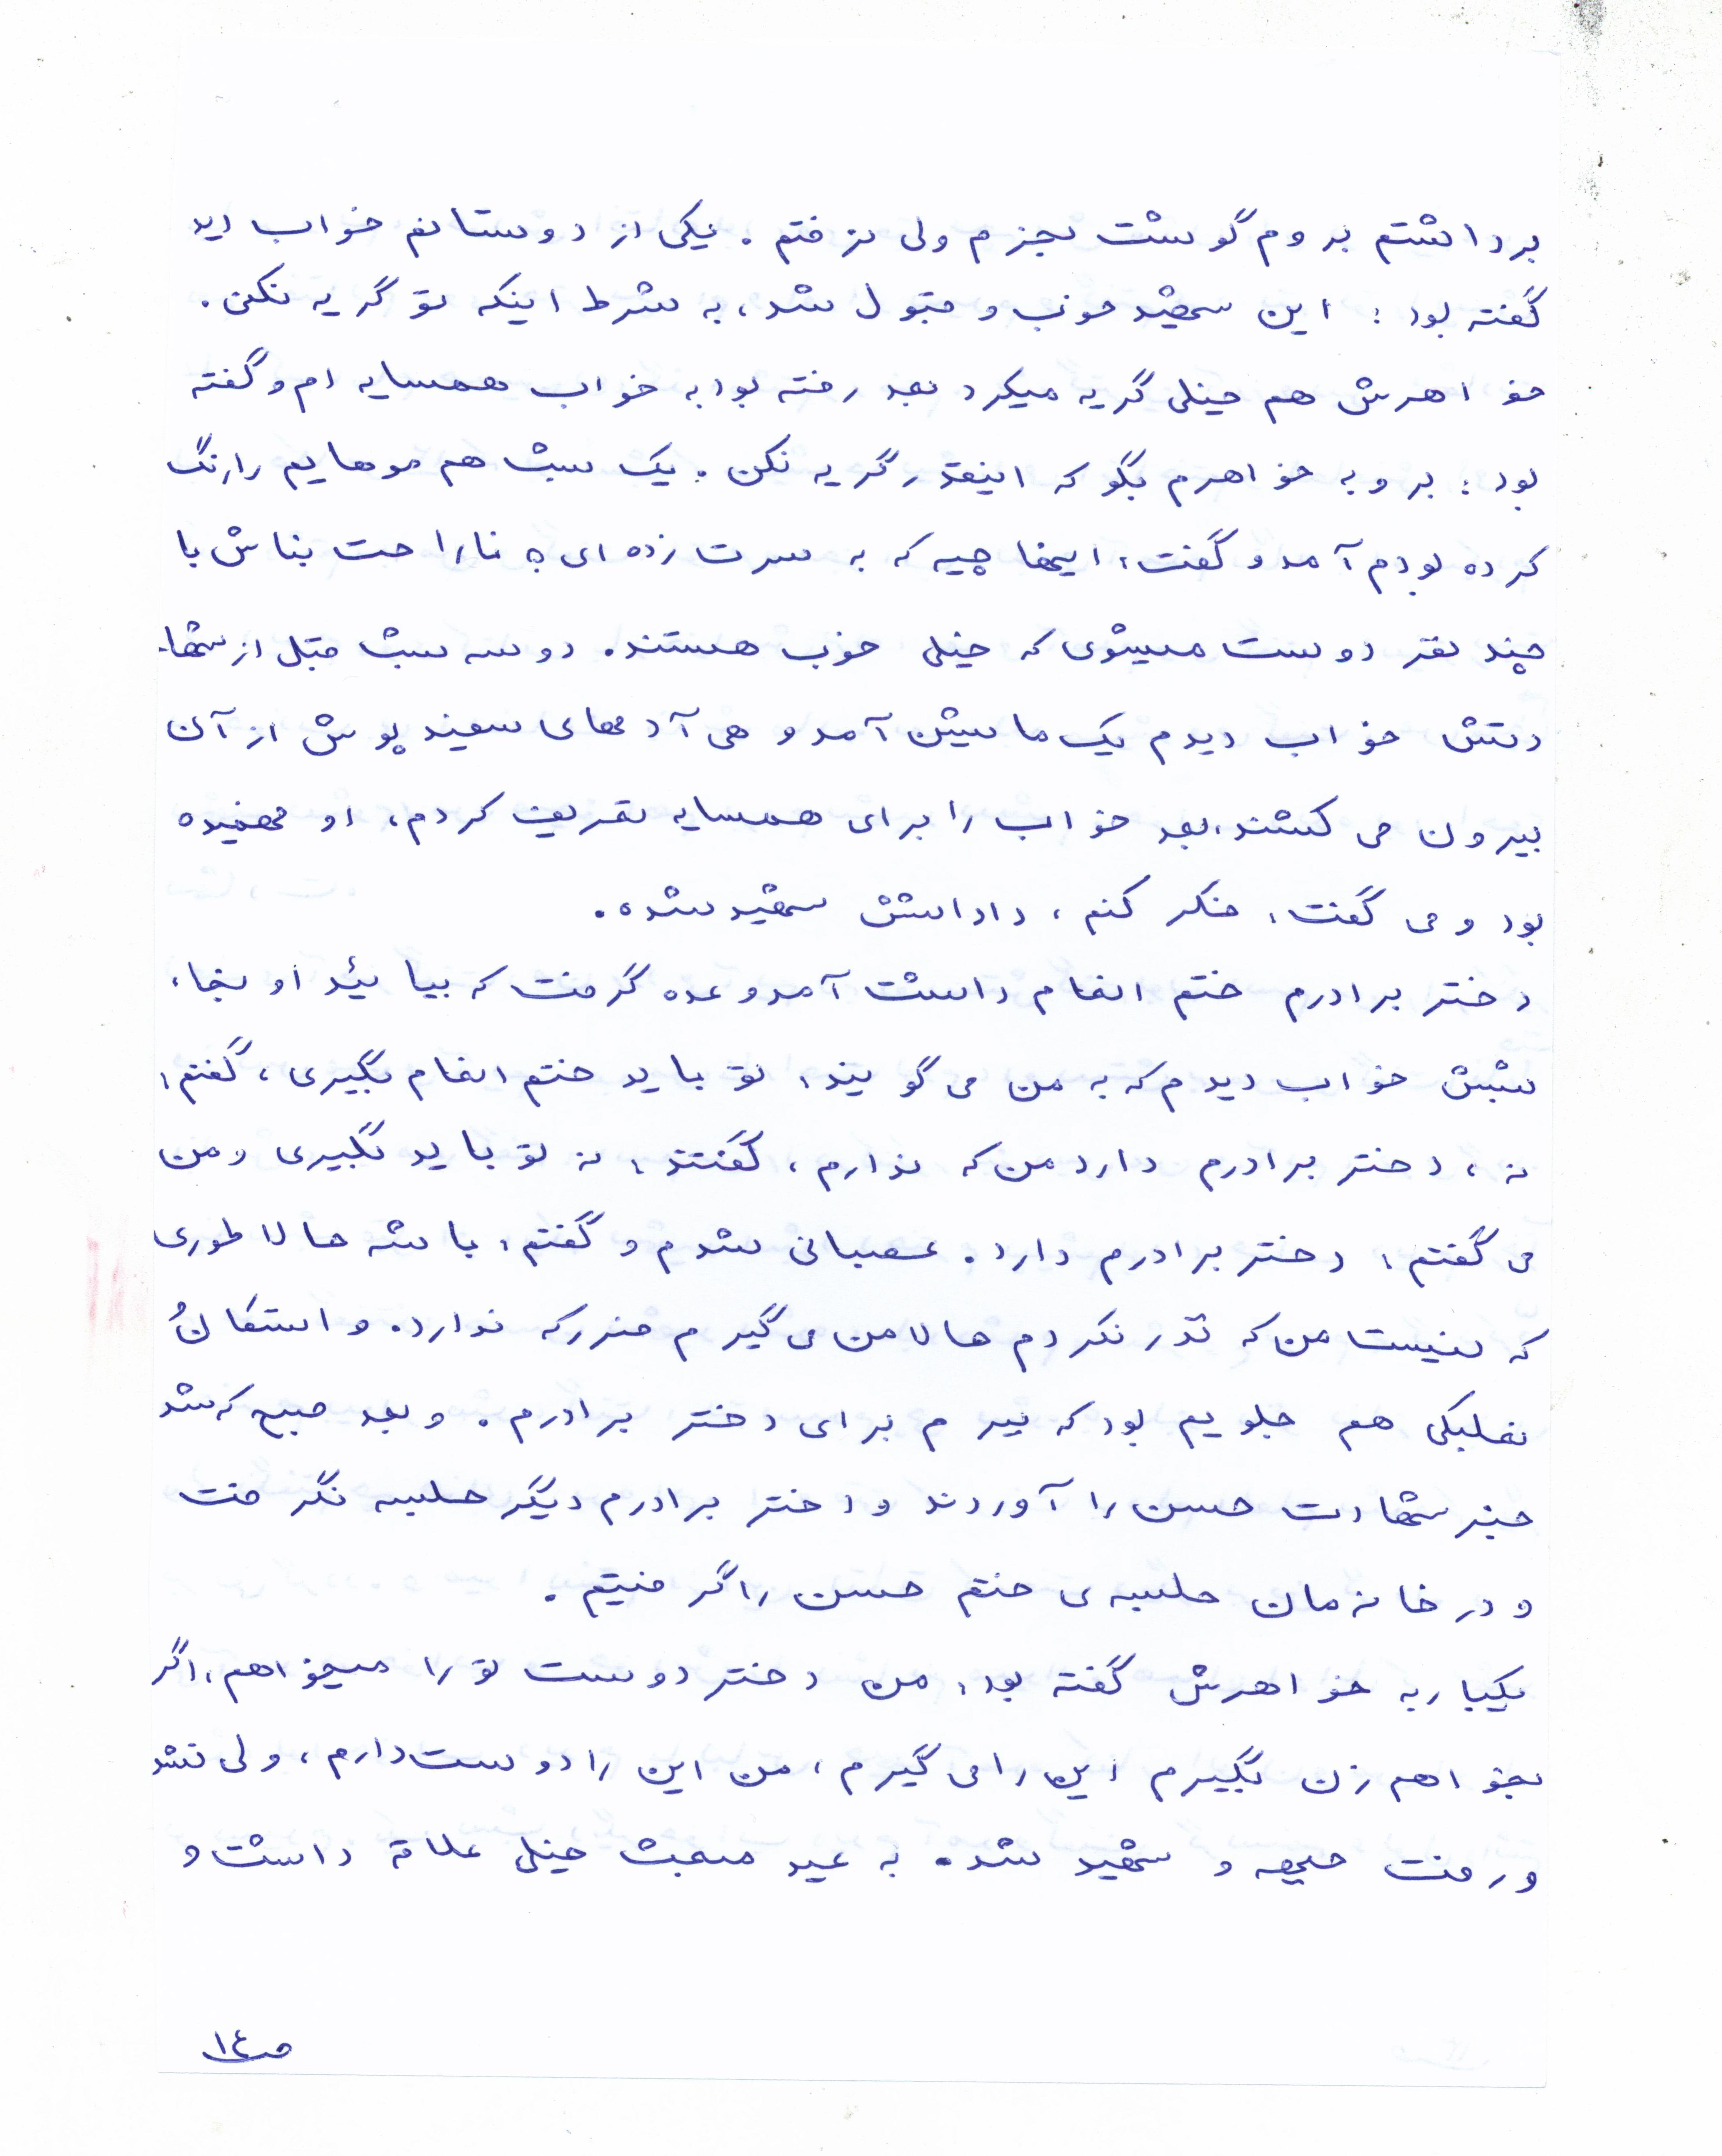 برداشتم بروم گوشت بخرم ولی نرفتم. یکی از دوستانم خواب دید
گفته بود: این شهید خوب و قبول شد، به شرط اینکه تو گریه نکنی.
خواهرش هم خیلی گریه میکرد بعد رفته بود به خواب همسایه ام و گفته
بود: برو به خواهرم بگو که اینقدر گریه نکن. یک شب هم موهایم را رنگ
کرده بودم آمد و گفت: اینها چیه که به سرت زده ای؟ ناراحت نباش با
چند نفر دوست میشوی که خیلی خوب هستند. دو سه شب قبل از شها
دتش خواب دیدم یک ماشین آمد و هی آدمهای سفید پوش از آن
بیرون می کشند، بعد خواب را برای همسایه تعریف کردم، او فهمیده
بود و می گفت: فکر کنم، داداشش شهید شده.
دختر برادرم ختم انعام داشت آمد وعده گرفت که بیائید اونجا،
شبش خواب دیدم که به من می گویند: تو باید ختم انعام بگیری، گفتم:
نه، دختر برادرم دارد من که ندارم، گفتند: نه تو باید بگیری و من
می گفتم: دختر برادرم دارد. عصبانی شدم و گفتم: باشه حالا طوری
که نیست من که نذر نکردم حالا من می گیرم ضرر که ندارد. و استکانُ
نعلبکی هم جلویم بود که ببرم برای دختر برادرم. و بعد صبح که شد
خبر شهادت حسن را آوردند و دختر برادرم دیگر جلسه نگرفت
و در خانه مان جلسه ی ختم حسن را گرفتیم.
یکبار به خواهرش گفته بود: من دختر دوست تو را میخواهم، اگر
بخواهم زن بگیرم این را می گیرم، من این را دوست دارم، ولی نشد
و رفت جبهه و شهید شد. به عید مبعث خیلی علاقه داشت و
ص١٤